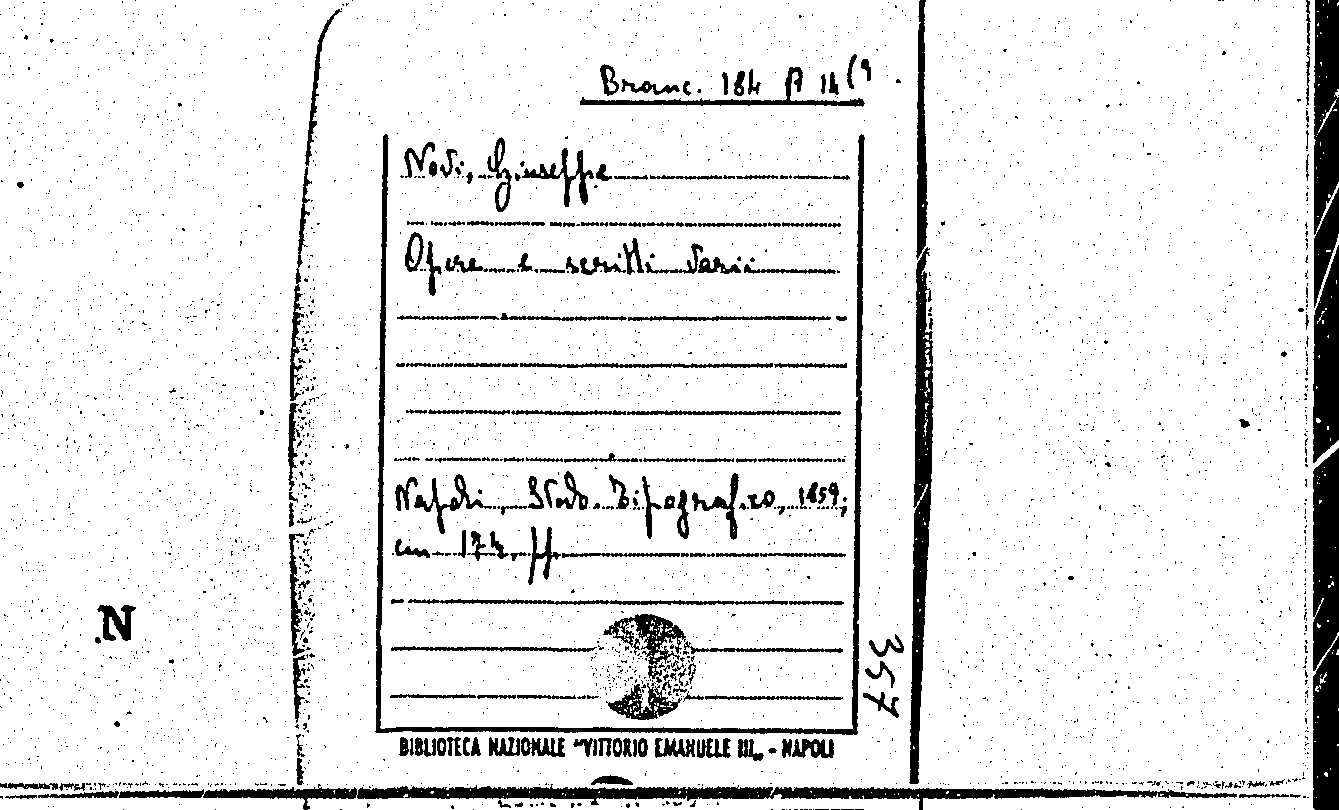 Branc. 184 A 14(9
Novi, Giuseppe
Opere e scritti varii
Napoli, Stab. Tipografico, 1859;
cm 17½, pp.
357
N
BIBLIOTECA NAZIONALE "VITTORIO EMANUELE III„ - NAPOLI